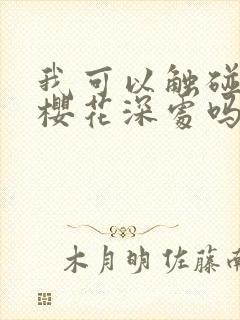 我可以触碰
樱花深处吗
木月明 佐藤南